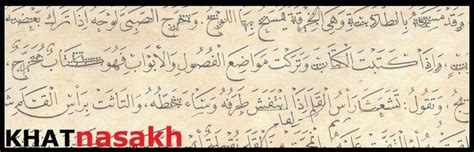 وقد مسح بالطلاسة وهي الخرقة يمسح بها اللوح، وتخرج الصبي لوحه ترك بعضه
وإذا كتبت الكتاب وتركت مواضع الفصول والأبواب فهو كتاب مخرج
وتقول: تشعث رأس القلم إذا انتفش طرفه وساء خطه، والتاثت برأس القلم
KHATnasakh